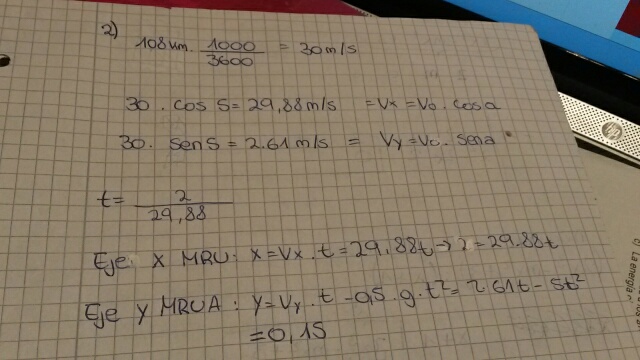 2)
108 km. 1000/3600 = 30 m/s
30 . cos 5 = 29,88 m/s = Vx = Vo . cosa
30. sen 5 = 2.61 m/s = Vy = Vo . sena
t = 2/29,88
Eje X MRU: X = Vx . t = 29,88t → 2 = 29.88t
Eje Y MRUA: Y = Vy . t - 0,5 . g . t² = 2.61t - 5t²
= 0,15
hp
La energía